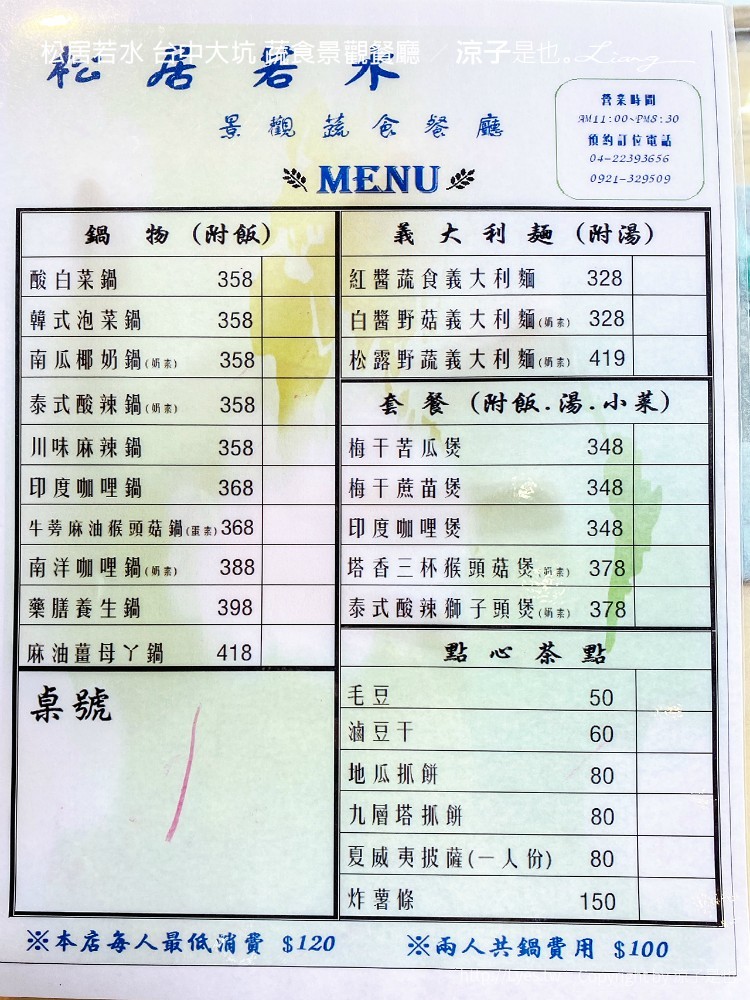 松居若水 台中大坑 蔬食景觀餐廳 / 涼子是也。Liang
松居若水
景觀蔬食餐廳
MENU
營業時間
AM11:00~PM8:30
預約訂位電話
04-22393656
0921-329509
鍋物(附飯)
酸白菜鍋 358
韓式泡菜鍋 358
南瓜椰奶鍋(奶素) 358
泰式酸辣鍋(奶素) 358
川味麻辣鍋 358
印度咖哩鍋 368
牛蒡麻油猴頭菇鍋(蛋素) 368
南洋咖哩鍋(奶素) 388
藥膳養生鍋 398
麻油薑母丫鍋 418
桌號
義大利麵(附湯)
紅醬蔬食義大利麵 328
白醬野菇義大利麵(奶素) 328
松露野蔬義大利麵(奶素) 419
套餐(附飯.湯.小菜)
梅干苦瓜煲 348
梅干蔗苗煲 348
印度咖哩煲 348
塔香三杯猴頭菇煲(奶素) 378
泰式酸辣獅子頭煲(奶素) 378
點心茶點
毛豆 50
滷豆干 60
地瓜抓餅 80
九層塔抓餅 80
夏威夷披薩(一人份) 80
炸薯條 150
※本店每人最低消費 $120
※兩人共鍋費用 $100